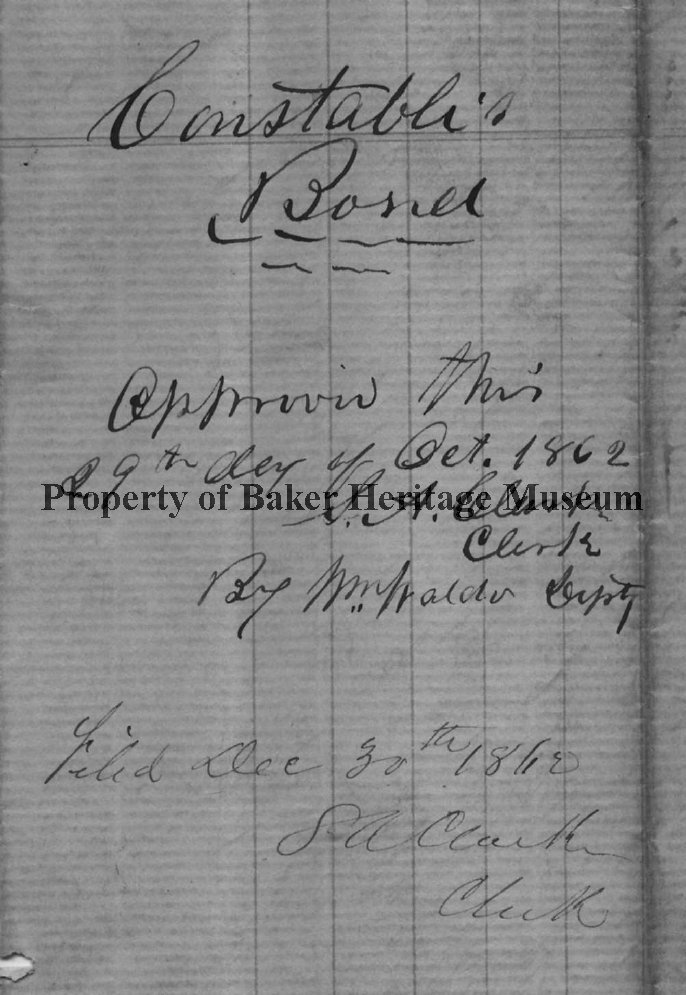 Constable's
Bond
Approved this
29th day of Oct. 1862
Property of Baker Heritage Museum
S. A. Clarke
Clerk
By Wm. Waldo Depty
Filed Dec 30th 1862
S A Clarke
Clerk